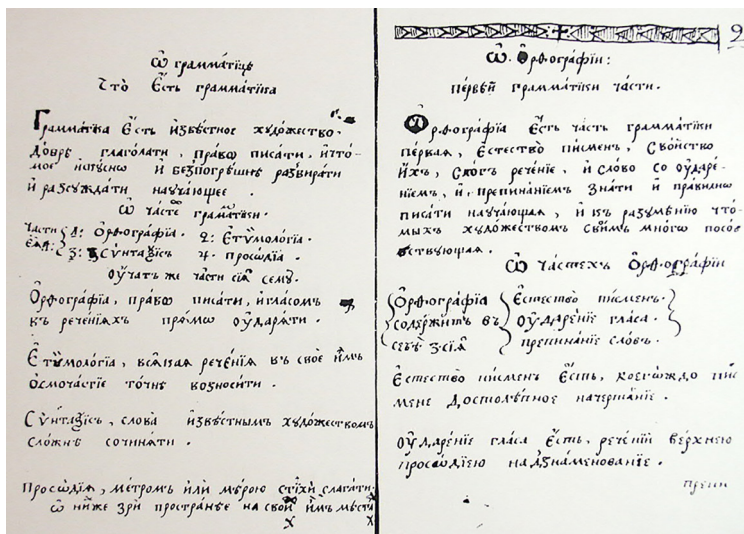 Ѡ грамма́тїцѣ
Что̀ Є҆́сть грамма́тїка
Грамма́тїка Є҆́сть и҆звѣ́стное худо́жество
до́брѣ глаго́лати, пра́вѡ писа́ти, и҆ что́-
мое и҆ску́сно и҆ безпогрѣ́шнѣ разбира́ти
и҆ разсужда́ти науча́ющее.
Ѡ ча́сте грамма́тїки.
Части а҃: Ѻ҆рѳогра́фїа. в҃: Є҆тѷмоло́гїа.
еѧ̀ д҃: г҃: Сѷ́нтаѯїсъ д҃: просѡді́а.
Оу҆́чат же ча́сти сїѧ̀ сему̀.
Ѻ҆рѳогра́фїа, пра́вѡ писа́ти, и҆ гла́сомъ
въ рече́нїѧхъ прѧ́мѡ оу҆дарѧ́ти.
Є҆тѷмоло́гїа, всѧ́каѧ рече́нїѧ въ своѐ и҆̀мъ
осмоча́стїе то́чнѣ возноси́ти.
Сѷ́нтаѯїсъ, словѐ и҆звѣ́стнымъ худо́жествомъ
сло́жнѣ сочинѧ́ти.
Просѡ́дїѧ, ме́тромъ и҆лѝ мѣ́рою стїхѝ слага́ти.
ѡ҆ ни́же зрѝ простра́ннѣе на свои́ и҆́мъ мѣ́стѣ
х х
2
Ѡ Ѻ҆рѳогра́фїи:
пе́рвей грамма́тїки ча́сти.
Ѻ҆рѳогра́фїа Є҆́сть ча́сть грамма́тїки
пе́рваѧ, є҆стество̀ пи́сменъ, сво́йство
и҆́хъ, сло́гъ рече́нїе, и҆ сло́во со оу҆даре́-
нїемъ, и҆ препина́нїемъ зна́ти и҆ пра́вилнѡ
писа́ти науча́ющаѧ, и҆ къ разумѣ́нїю что́-
мыхъ худо́жествомъ свои́мъ мно́гѡ посо́б
ствующаѧ.
Ѡ ча́стехъ Ѻ҆рѳогра́фїи
Ѻ҆рѳогра́фїа Є҆стество̀ пи́сменъ.
содержи́тъ въ Оу҆даре́нїе гла́са.
себѣ̀ г҃ сїѧ̀ препина́нїе сло́въ.
Є҆стество̀ пи́сменъ Є҆́сть, коегѡ́ждо пис
мене достолѣ́пное начерта́нїе.
Оу҆даре́нїе гла́са Є҆́сть, рече́нїй ве́рхнею
просѡді́ею надзнаменова́нїе.
препи